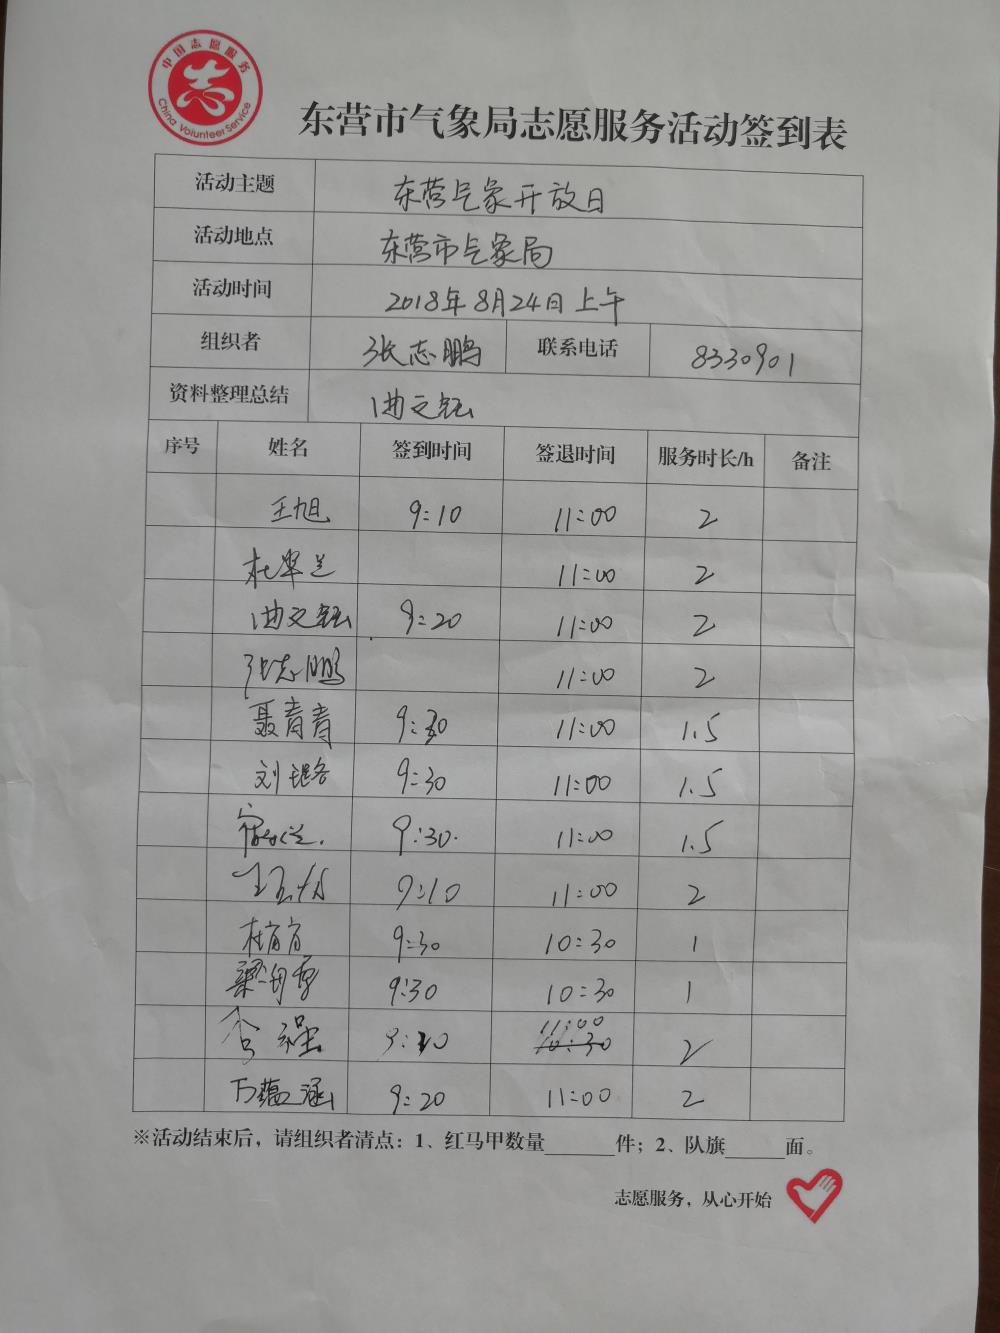 中国志愿服务
志
China Volunteer Service
东营市气象局志愿服务活动签到表
活动主题 东营气象开放日
活动地点 东营市气象局
活动时间 2018年8月24日上午
组织者 张志鹏 联系电话 8330901
资料整理总结 曲文钰
序号 姓名 签到时间 签退时间 服务时长/h 备注
王旭 9:10 11:00 2
杜翠兰 11:00 2
曲文钰 9:20 11:00 2
张志鹏 11:00 2
聂青青 9:30 11:00 1.5
刘璐 9:30 11:00 1.5
9:30 11:00 1.5
9:10 11:00 2
杜肖肖 9:30 10:30 1
梁 9:30 10:30 1
11:00
9:20 10:30 2
万蕴涵 9:20 11:00 2
※活动结束后，请组织者清点：1、红马甲数量______件；2、队旗______面。
志愿服务，从心开始